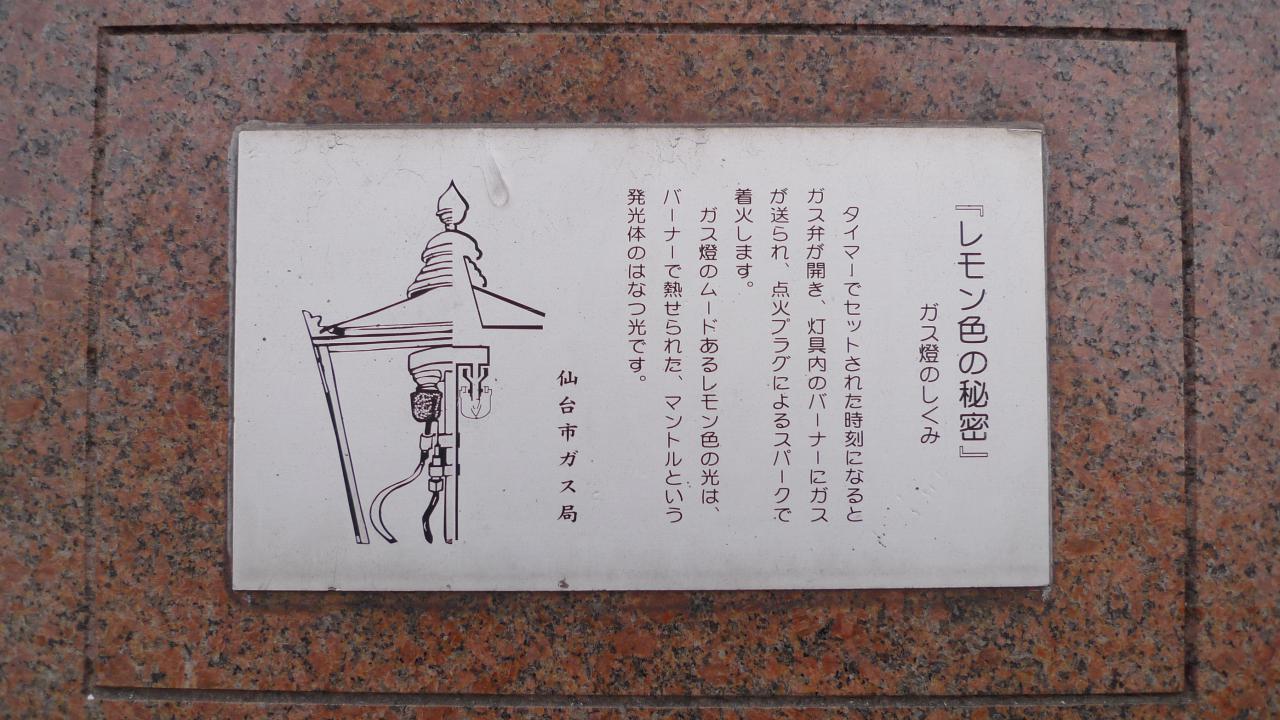 『レモン色の秘密』
ガス燈のしくみ
タイマーでセットされた時刻になると
ガス弁が開き、灯具内のバーナーにガス
が送られ、点火プラグによるスパークで
着火します。
ガス燈のムードあるレモン色の光は、
バーナーで熱せられた、マントルという
発光体のはなつ光です。
仙台市ガス局